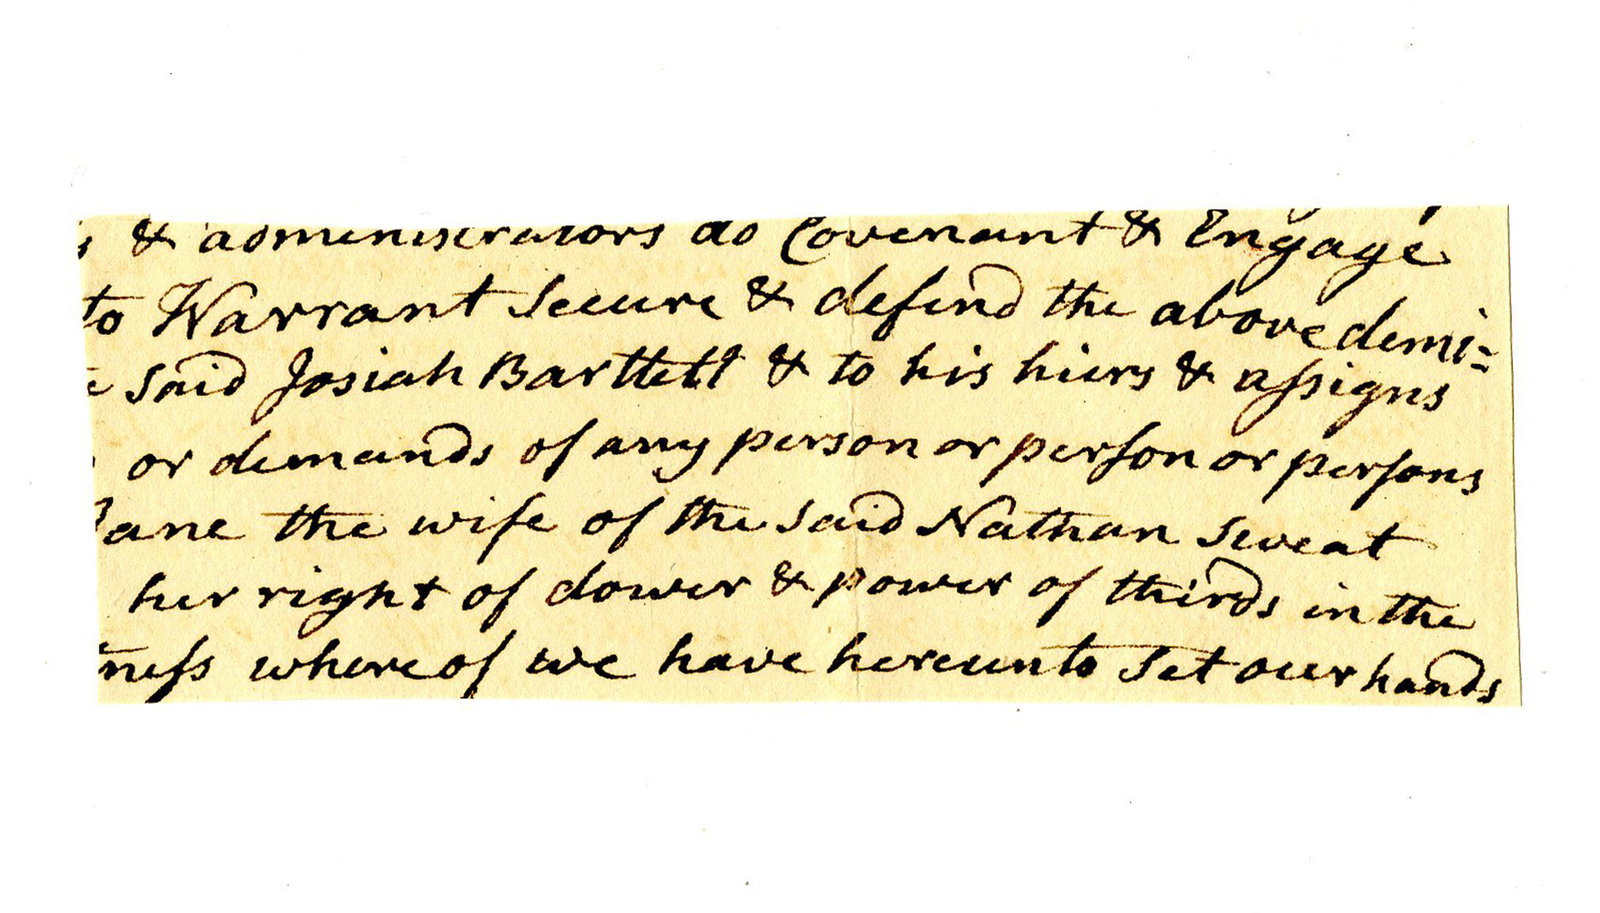 s & administrators do Covenant & Engage
to Warrant Secure & defend the above demi=
e said Josiah Bartlett & to his hiers & aſsigns
or demands of any person or perſon or perſons
Jane the wife of the said Nathan Sweat
her right of dower & power of thirds in the
neſs whereof we have hereunto Set our hands